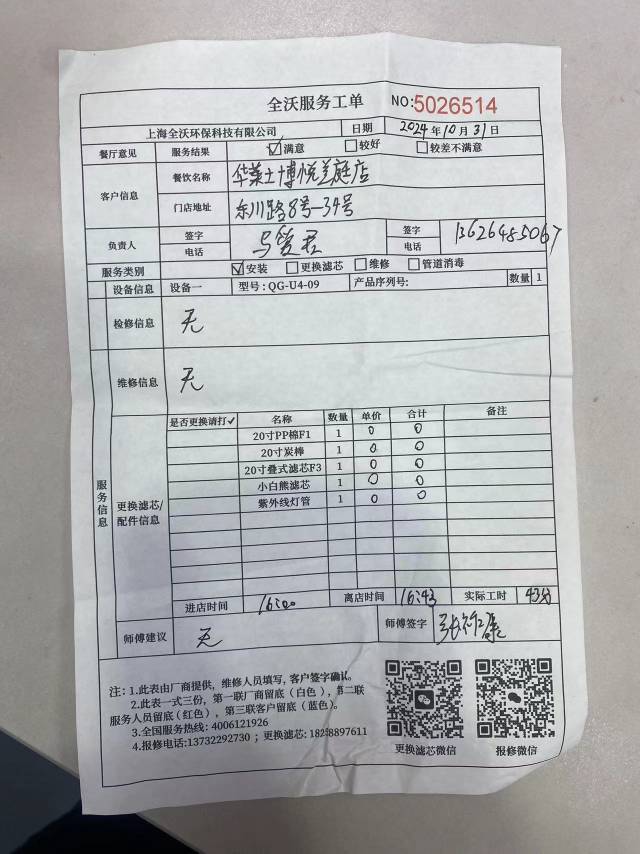 全沃服务工单 NO:5026514
上海全沃环保科技有限公司 日期 2024年10月31日
餐厅意见 服务结果 ☑满意 □较好 □较差不满意
客户信息 餐饮名称 华莱士博悦兰庭店
门店地址 东川路8号-34号
负责人 签字 电话 签字 电话 13626485067
服务类别 ☑安装 □更换滤芯 □维修 □管道消毒
设备信息 设备一 型号:QG-U4-09 产品序列号: 数量 1
检修信息 无
服务信息
维修信息 无
更换滤芯/配件信息
是否更换请打✓ 名称 数量 单价 合计 备注
20寸PP棉F1 1 0 0
20寸炭棒 1 0 0
20寸叠式滤芯F3 1 0 0
小白熊滤芯 1 0 0
紫外线灯管 1 0 0
进店时间 16:00 离店时间 16:43 实际工时 43分
师傅建议 无 师傅签字
注:1.此表由厂商提供,维修人员填写,客户签字确认。
2.此表一式三份,第一联厂商留底(白色),第二联
服务人员留底(红色),第三联客户留底(蓝色)。
3.全国服务热线:4006121926
4.报修电话:13732292730;更换滤芯:18268897611
更换滤芯微信 报修微信